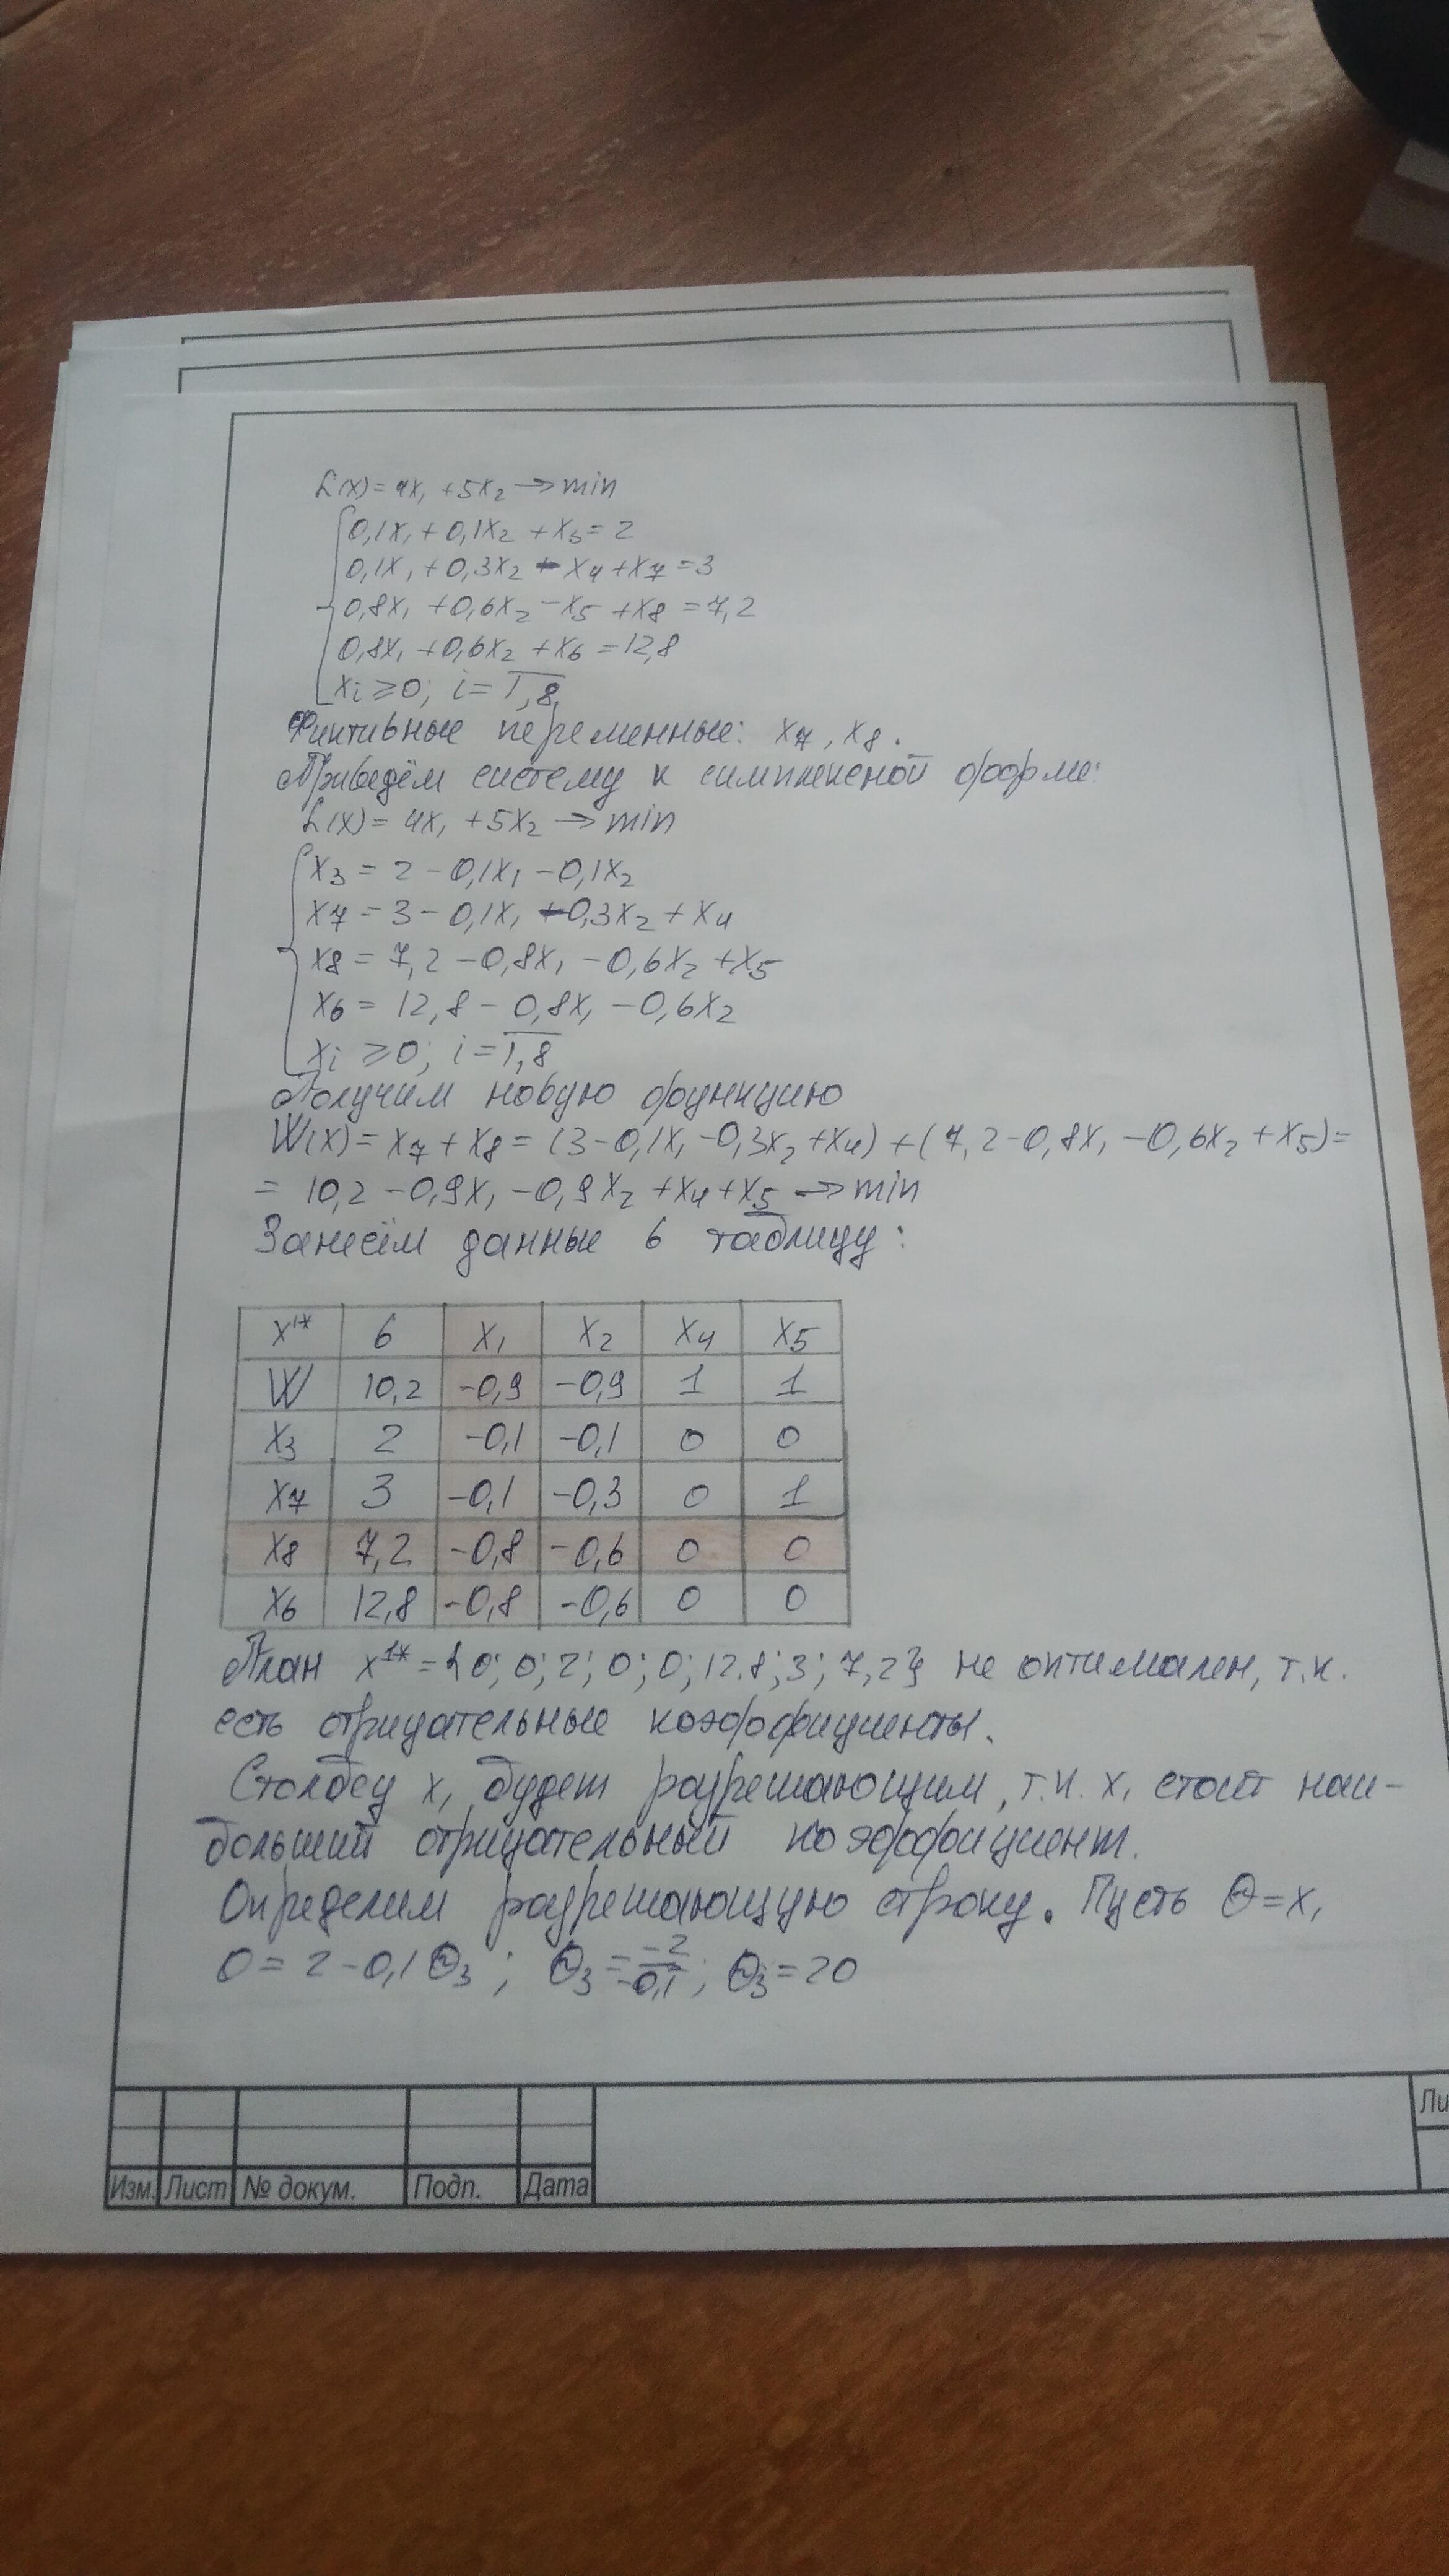 L(x) = 4x₁ + 5x₂ → min
0,1x₁ + 0,1x₂ + x₃ = 2
0,1x₁ + 0,3x₂ - x₄ + x₇ = 3
0,8x₁ + 0,6x₂ - x₅ + x₈ = 7,2
0,8x₁ + 0,6x₂ + x₆ = 12,8
xi ≥ 0; i = 1,8
Фиктивные переменные: x₇, x₈.
Приведём систему к симплексной форме:
L(x) = 4x₁ + 5x₂ → min
x₃ = 2 - 0,1x₁ - 0,1x₂
x₇ = 3 - 0,1x₁ - 0,3x₂ + x₄
x₈ = 7,2 - 0,8x₁ - 0,6x₂ + x₅
x₆ = 12,8 - 0,8x₁ - 0,6x₂
xi ≥ 0; i = 1,8
Получим новую функцию
W(x) = x₇ + x₈ = (3 - 0,1x₁ - 0,3x₂ + x₄) + (7,2 - 0,8x₁ - 0,6x₂ + x₅) =
= 10,2 - 0,9x₁ - 0,9x₂ + x₄ + x₅ → min
Занесём данные в таблицу:
x¹* в x₁ x₂ x₄ x₅
W 10,2 -0,9 -0,9 1 1
x₃ 2 -0,1 -0,1 0 0
x₇ 3 -0,1 -0,3 0 1
x₈ 7,2 -0,8 -0,6 0 0
x₆ 12,8 -0,8 -0,6 0 0
План x¹* = {0; 0; 2; 0; 0; 12.8; 3; 7,2} не оптимален, т.к.
есть отрицательные коэффициенты.
Столбец x₁ будет разрешающим, т.к. x₁ стоит наи-
больший отрицательный коэффициент.
Определим разрешающую строку. Пусть Θ = x₁
0 = 2 - 0,1Θ₃; Θ₃ = -2/-0,1; Θ₃ = 20
Ли
Изм. Лист № докум. Подп. Дата